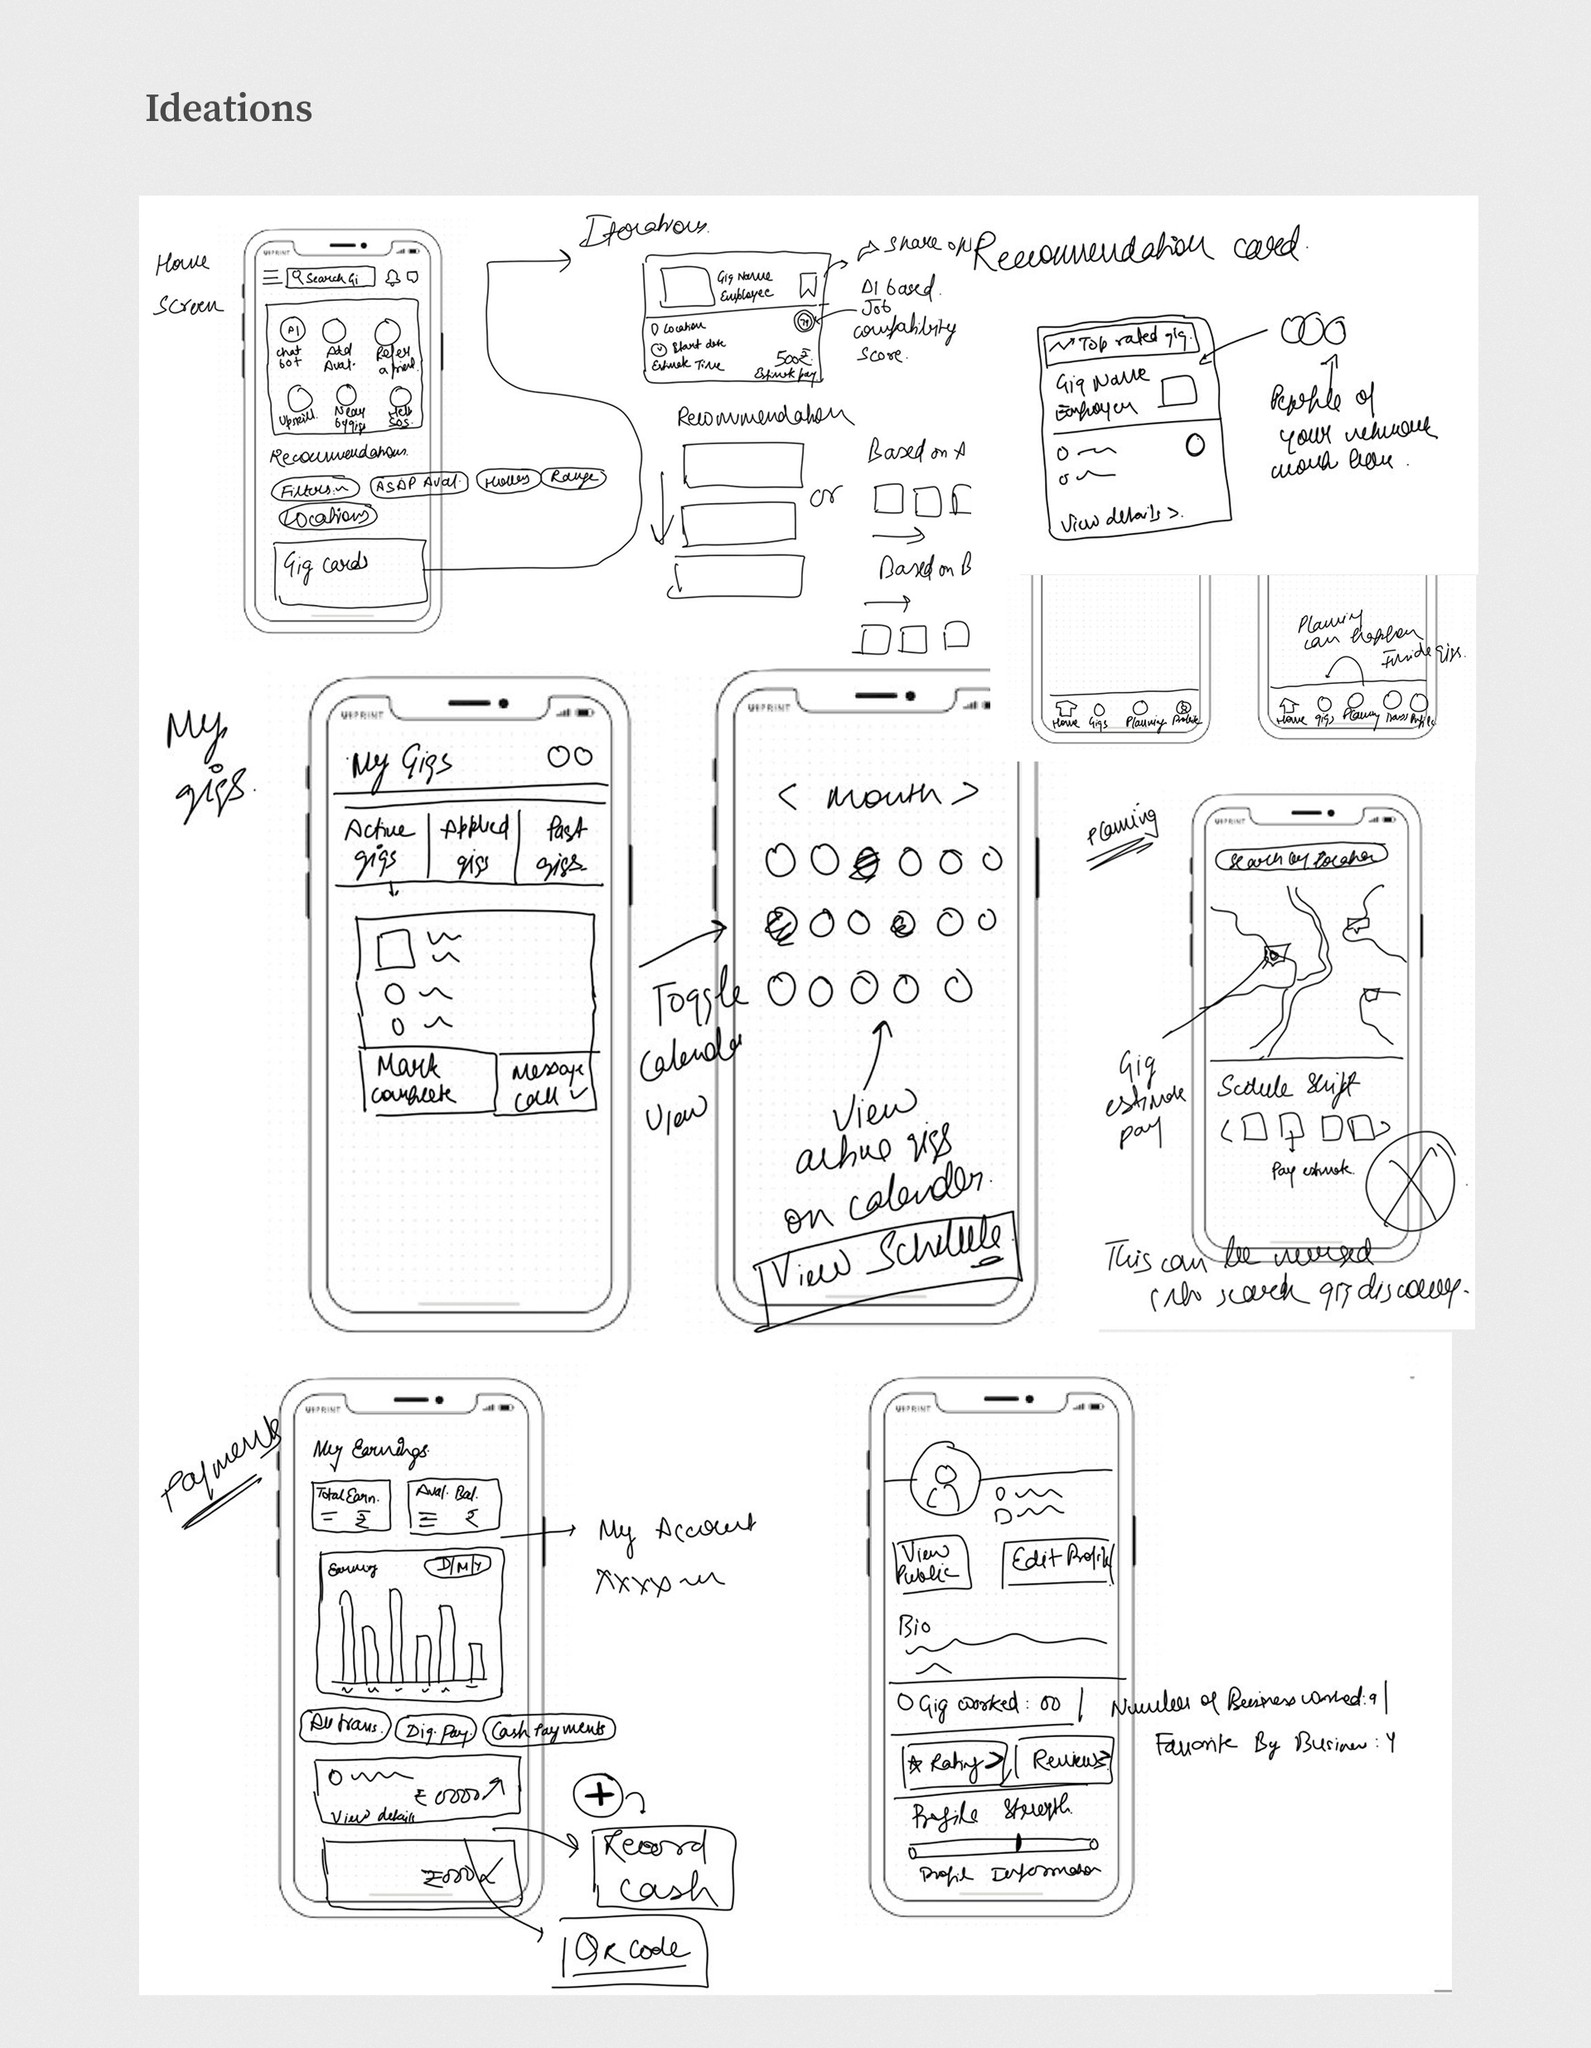 Ideations
Home
Screen
UXPRINT
Search Gi
AI
Chat
bot
Add
Aval.
Refer
a friend
Upskill.
Near
by gigs
Help
SOS.
Recommendations.
Filters
ASAP Aval.
Hours
Range
Locations
Gig cards
Iterations.
Gig Name
Employee
Location
Start date
Estimate Time
500₹
Estimate pay
Share op
AI based.
Job
compatibility
Score.
Recommendation card.
Top rated gig.
Gig Name
Employer
View details >
People of
your network
work here.
Recommendation
or
Based on A
Based on B
Home Gigs Planning Profile
Planning
can happen
Inside gigs.
Home Gigs Planning Profile
My
gigs.
UXPRINT
My Gigs
Active
gigs
Applied
gigs
Past
gigs.
Mark
complete
Message
call
Toggle
Calender
View
UXPRINT
< Month >
View
active gigs
on calender.
View Schedule.
Planning
UXPRINT
Search by location
Gig
estimate
pay
Schedule Shift
Pay estimate.
This can be merged
into search gig discovery.
Payments
UXPRINT
My Earnings.
Total Earn.
₹
Aval. Bal.
₹
My Account
xxxx
Earning
D/M/Y
All trans.
Dig. Pay
Cash Payments
View details
Record
Cash
QR code
UXPRINT
View
Public
Edit Profile
Bio
Gig worked: 00 | Number of Business worked: 9 |
Favorite By Business: Y
Rating >
Reviews >
Profile Strength.
Profile Information